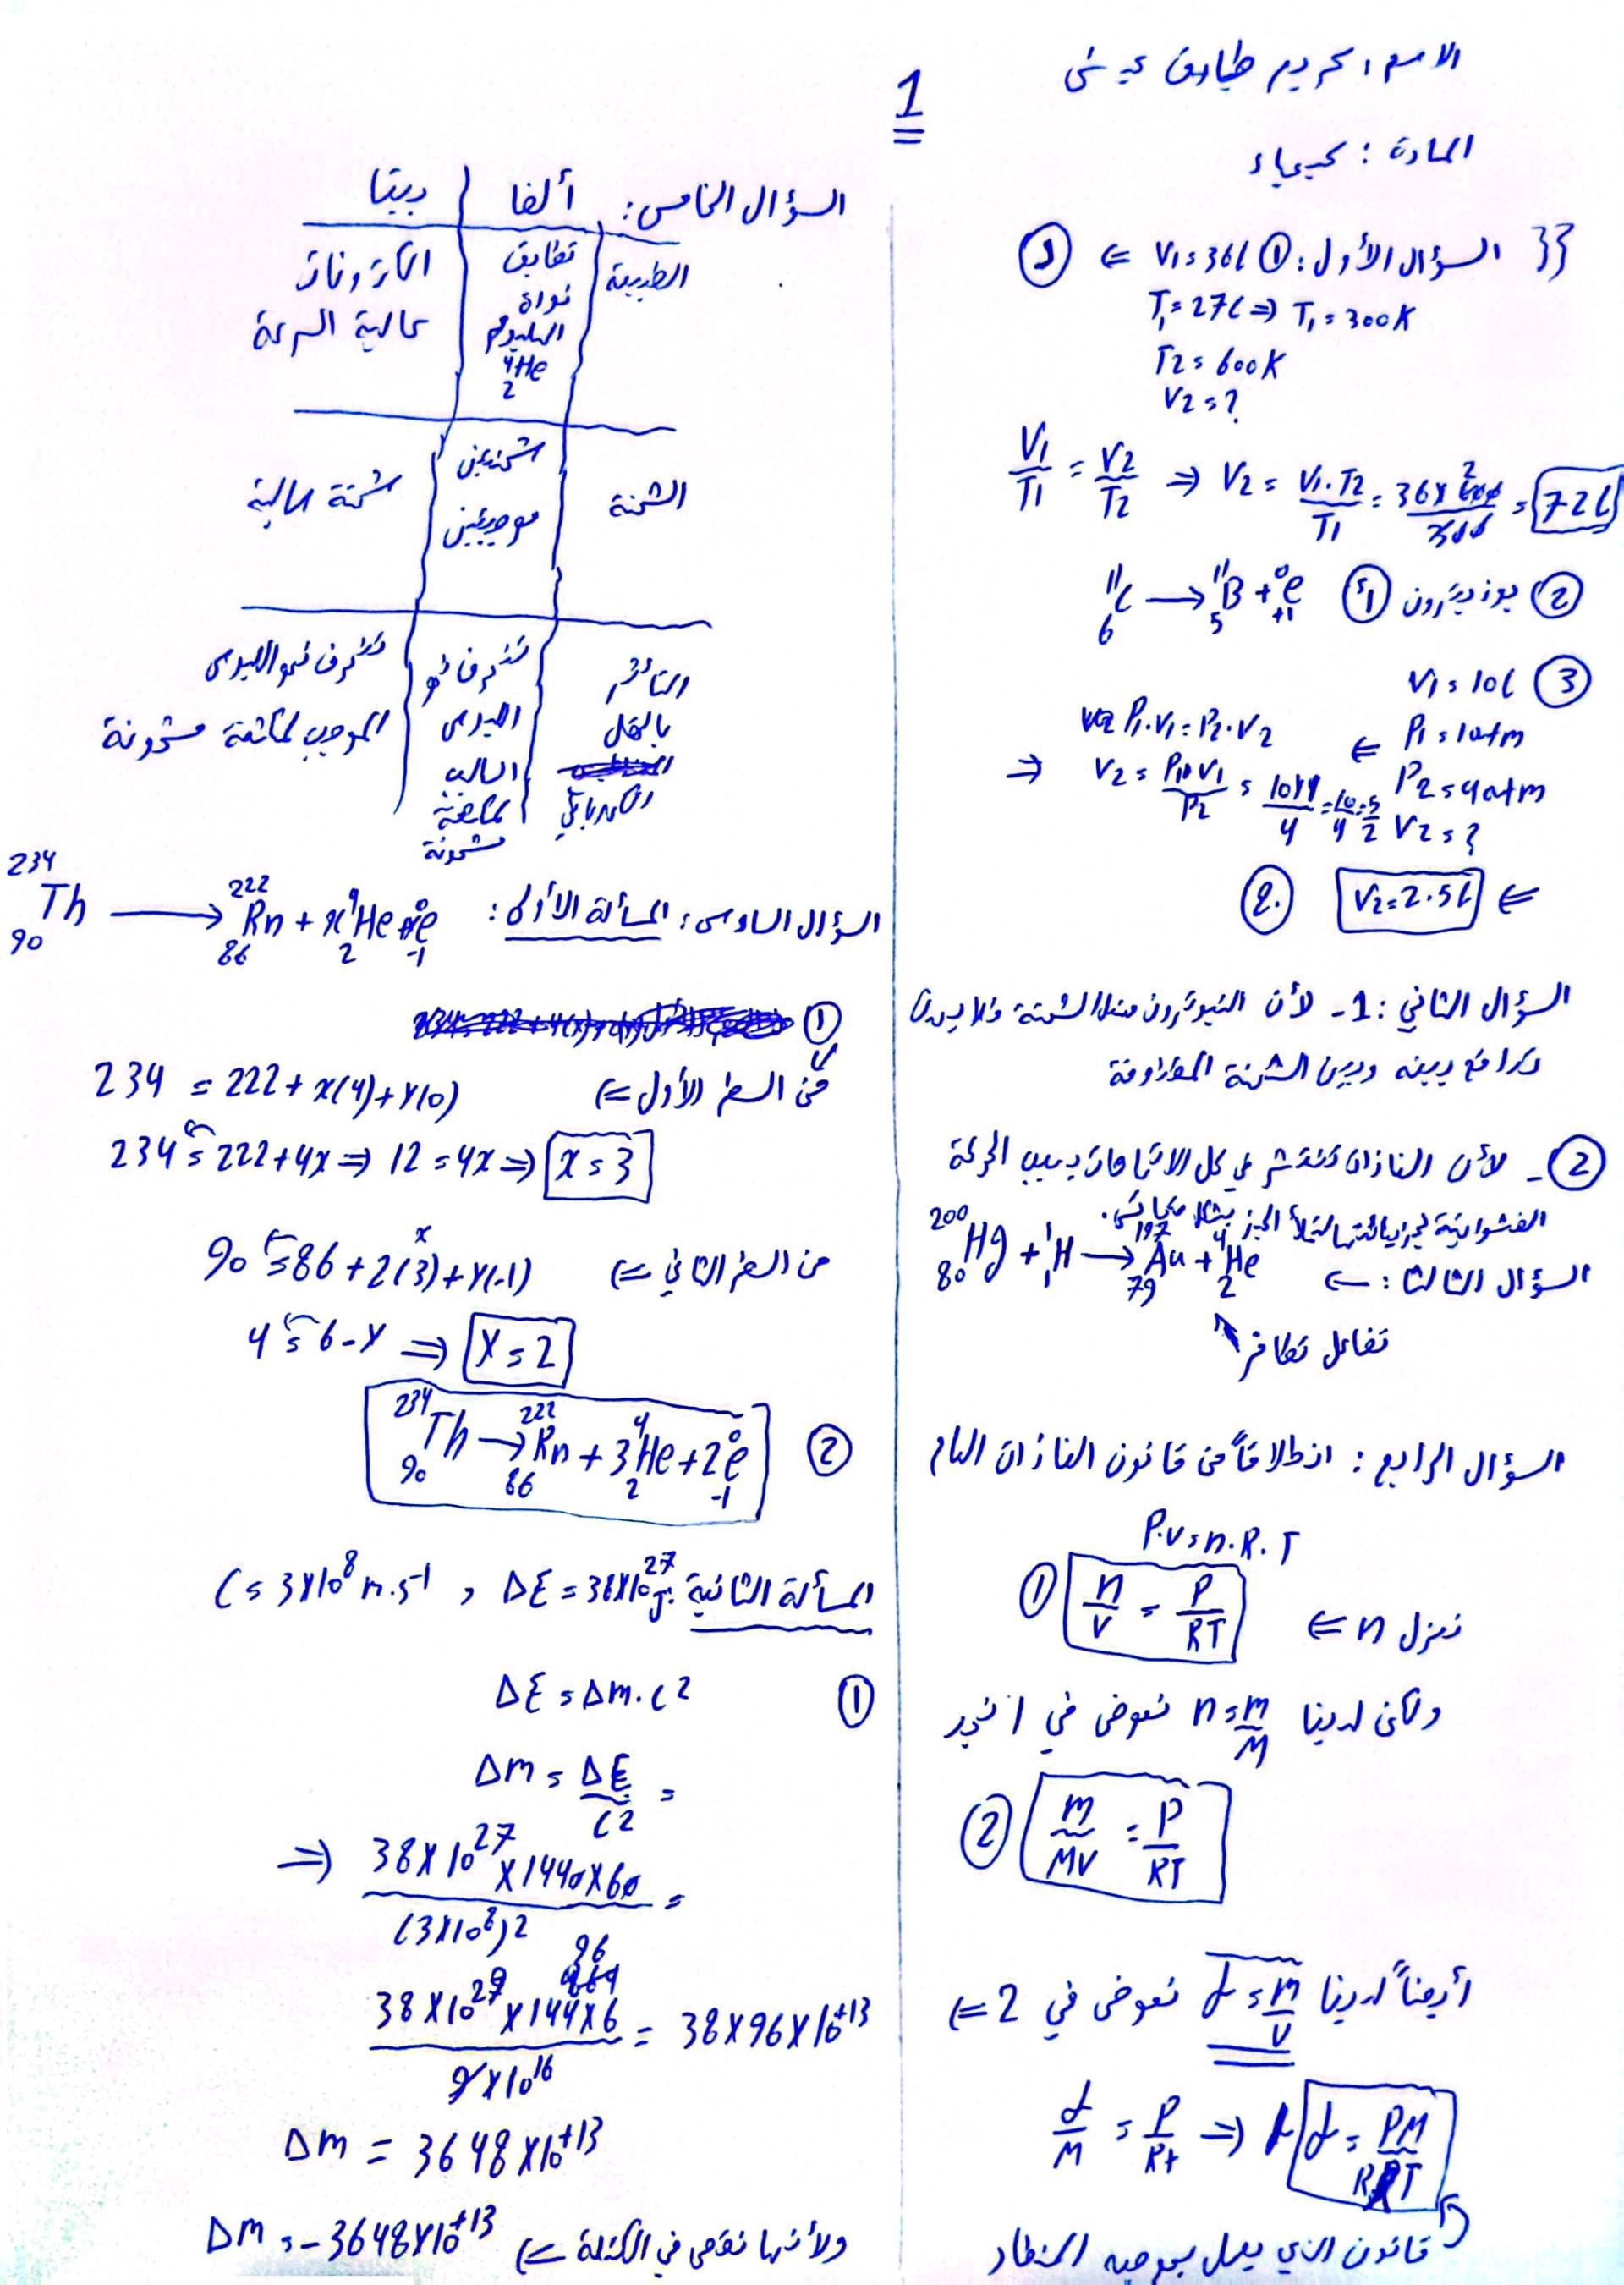 الاسم: كريم طارق عيسى
المادة: كيمياء
1
السؤال الأول: ① V1=36L ⇐ ①
T1=27C ⇒ T1=300K
T2=600K
V2=?
V1/T1 = V2/T2 ⇒ V2 = V1.T2/T1 = 36×600/300 = 72L
② بوزيترون 11 6 C → 11 5 B + 0 +1 e
③ V1=10L
P1=1atm ⇐ P1.V1=P2.V2
P2=4atm
⇒ V2 = P1.V1/P2 = 10×1/4 = 10/4 = 5/2
V2=?
⇒ V2=2.5L
السؤال الثاني: 1- لأن النيوترون معتدل الشحنة ولا يحدث
تدافع بينه وبين الشحنة
② - لأن الغازات تنتشر في كل الاتجاهات بسبب الحركة
العشوائية لجزيئاتها لتملأ الحيز بشكل متجانس.
السؤال الثالث: ← 200 80 Hg + 1 1 H → 197 79 Au + 4 2 He
تفاعل تطافر
السؤال الرابع: انطلاقاً من قانون الغازات العام
P.V=n.R.T
نعزل n ⇐ n/V = P/RT ①
ولكن لدينا n=m/M نعوض في 1 نجد
② m/MV = P/RT
أيضاً لدينا d=m/V نعوض في 2 ⇐
d/M = P/Rt ⇒ d = PM/RT
قانون الذي يعمل بموجبه المنطاد
السؤال الخامس: ألفا بيتا
الطبيعة تطابق نواة الهليوم 4 2 He الكترونات عالية السرعة
الشحنة شحنتين موجبتين شحنة سالبة
التأثر بالحقل الكهربائي تنحرف نحو اللبوس السالب لمكثفة مشحونة تنحرف نحو اللبوس الموجب لمكثفة مشحونة
السؤال السادس: المسألة الأولى: 234 90 Th → 222 86 Rn + x 4 2 He + y 0 -1 e
①
من السطر الأول ⇐ 234 = 222 + x(4) + y(0)
234 = 222+4x ⇒ 12 = 4x ⇒ x=3
من السطر الثاني ⇐ 90 = 86 + 2(3) + y(-1)
4 = 6-y ⇒ y=2
② 234 90 Th → 222 86 Rn + 3 4 2 He + 2 0 -1 e
المسألة الثانية ΔE = 38×10^27 J. , C = 3×10^8 m.s^-1
① ΔE = Δm.c2
Δm = ΔE/c2 =
⇒ 38×10^27 ×1440×60/(3×10^8)2 =
38×10^29 ×144×6/9×10^16 = 38×96×10^+13
Δm = 3648×10^+13
ولأنها نقص في الكتلة ⇐ Δm = -3648×10^+13